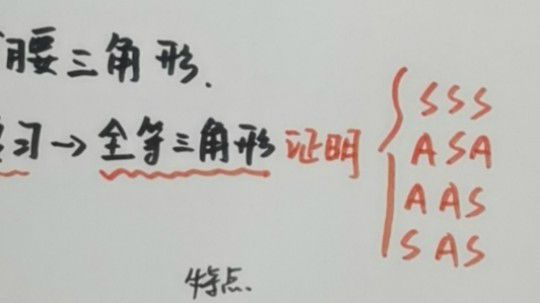 腰三角形.
习→全等三角形 证明
SSS
ASA
AAS
SAS
特点.